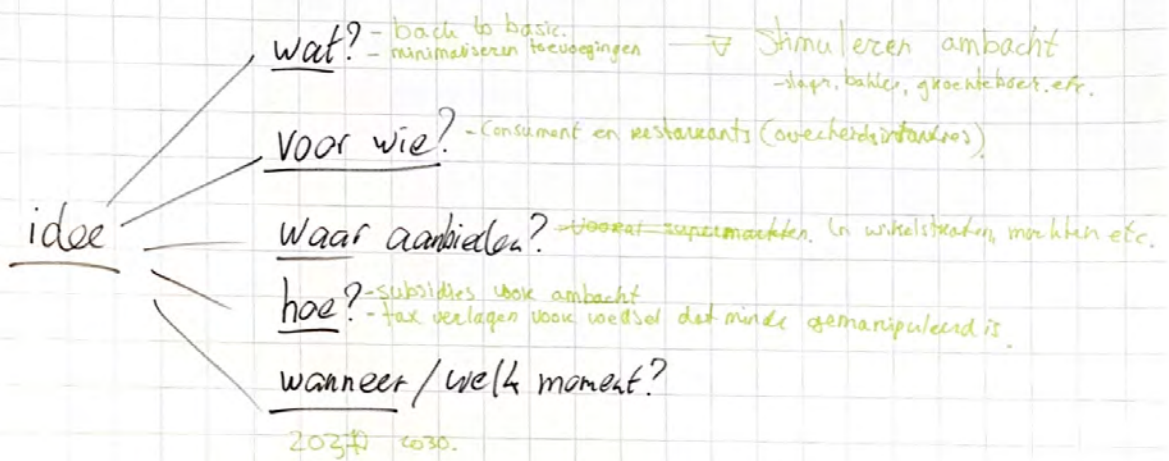 wat? - back to basic.
- minimaliseren toevoegingen → Stimuleren ambacht
- slager, bakker, groenteboer, etc.
voor wie? - Consument en restaurants (overheidsinstanties).
idee
waar aanbieden? - Vooral supermarkten. In winkelstraten, markten etc.
hoe? - subsidies voor ambacht
- tax verlagen voor voedsel dat minde gemanipuleerd is.
wanneer / welk moment?
2030.